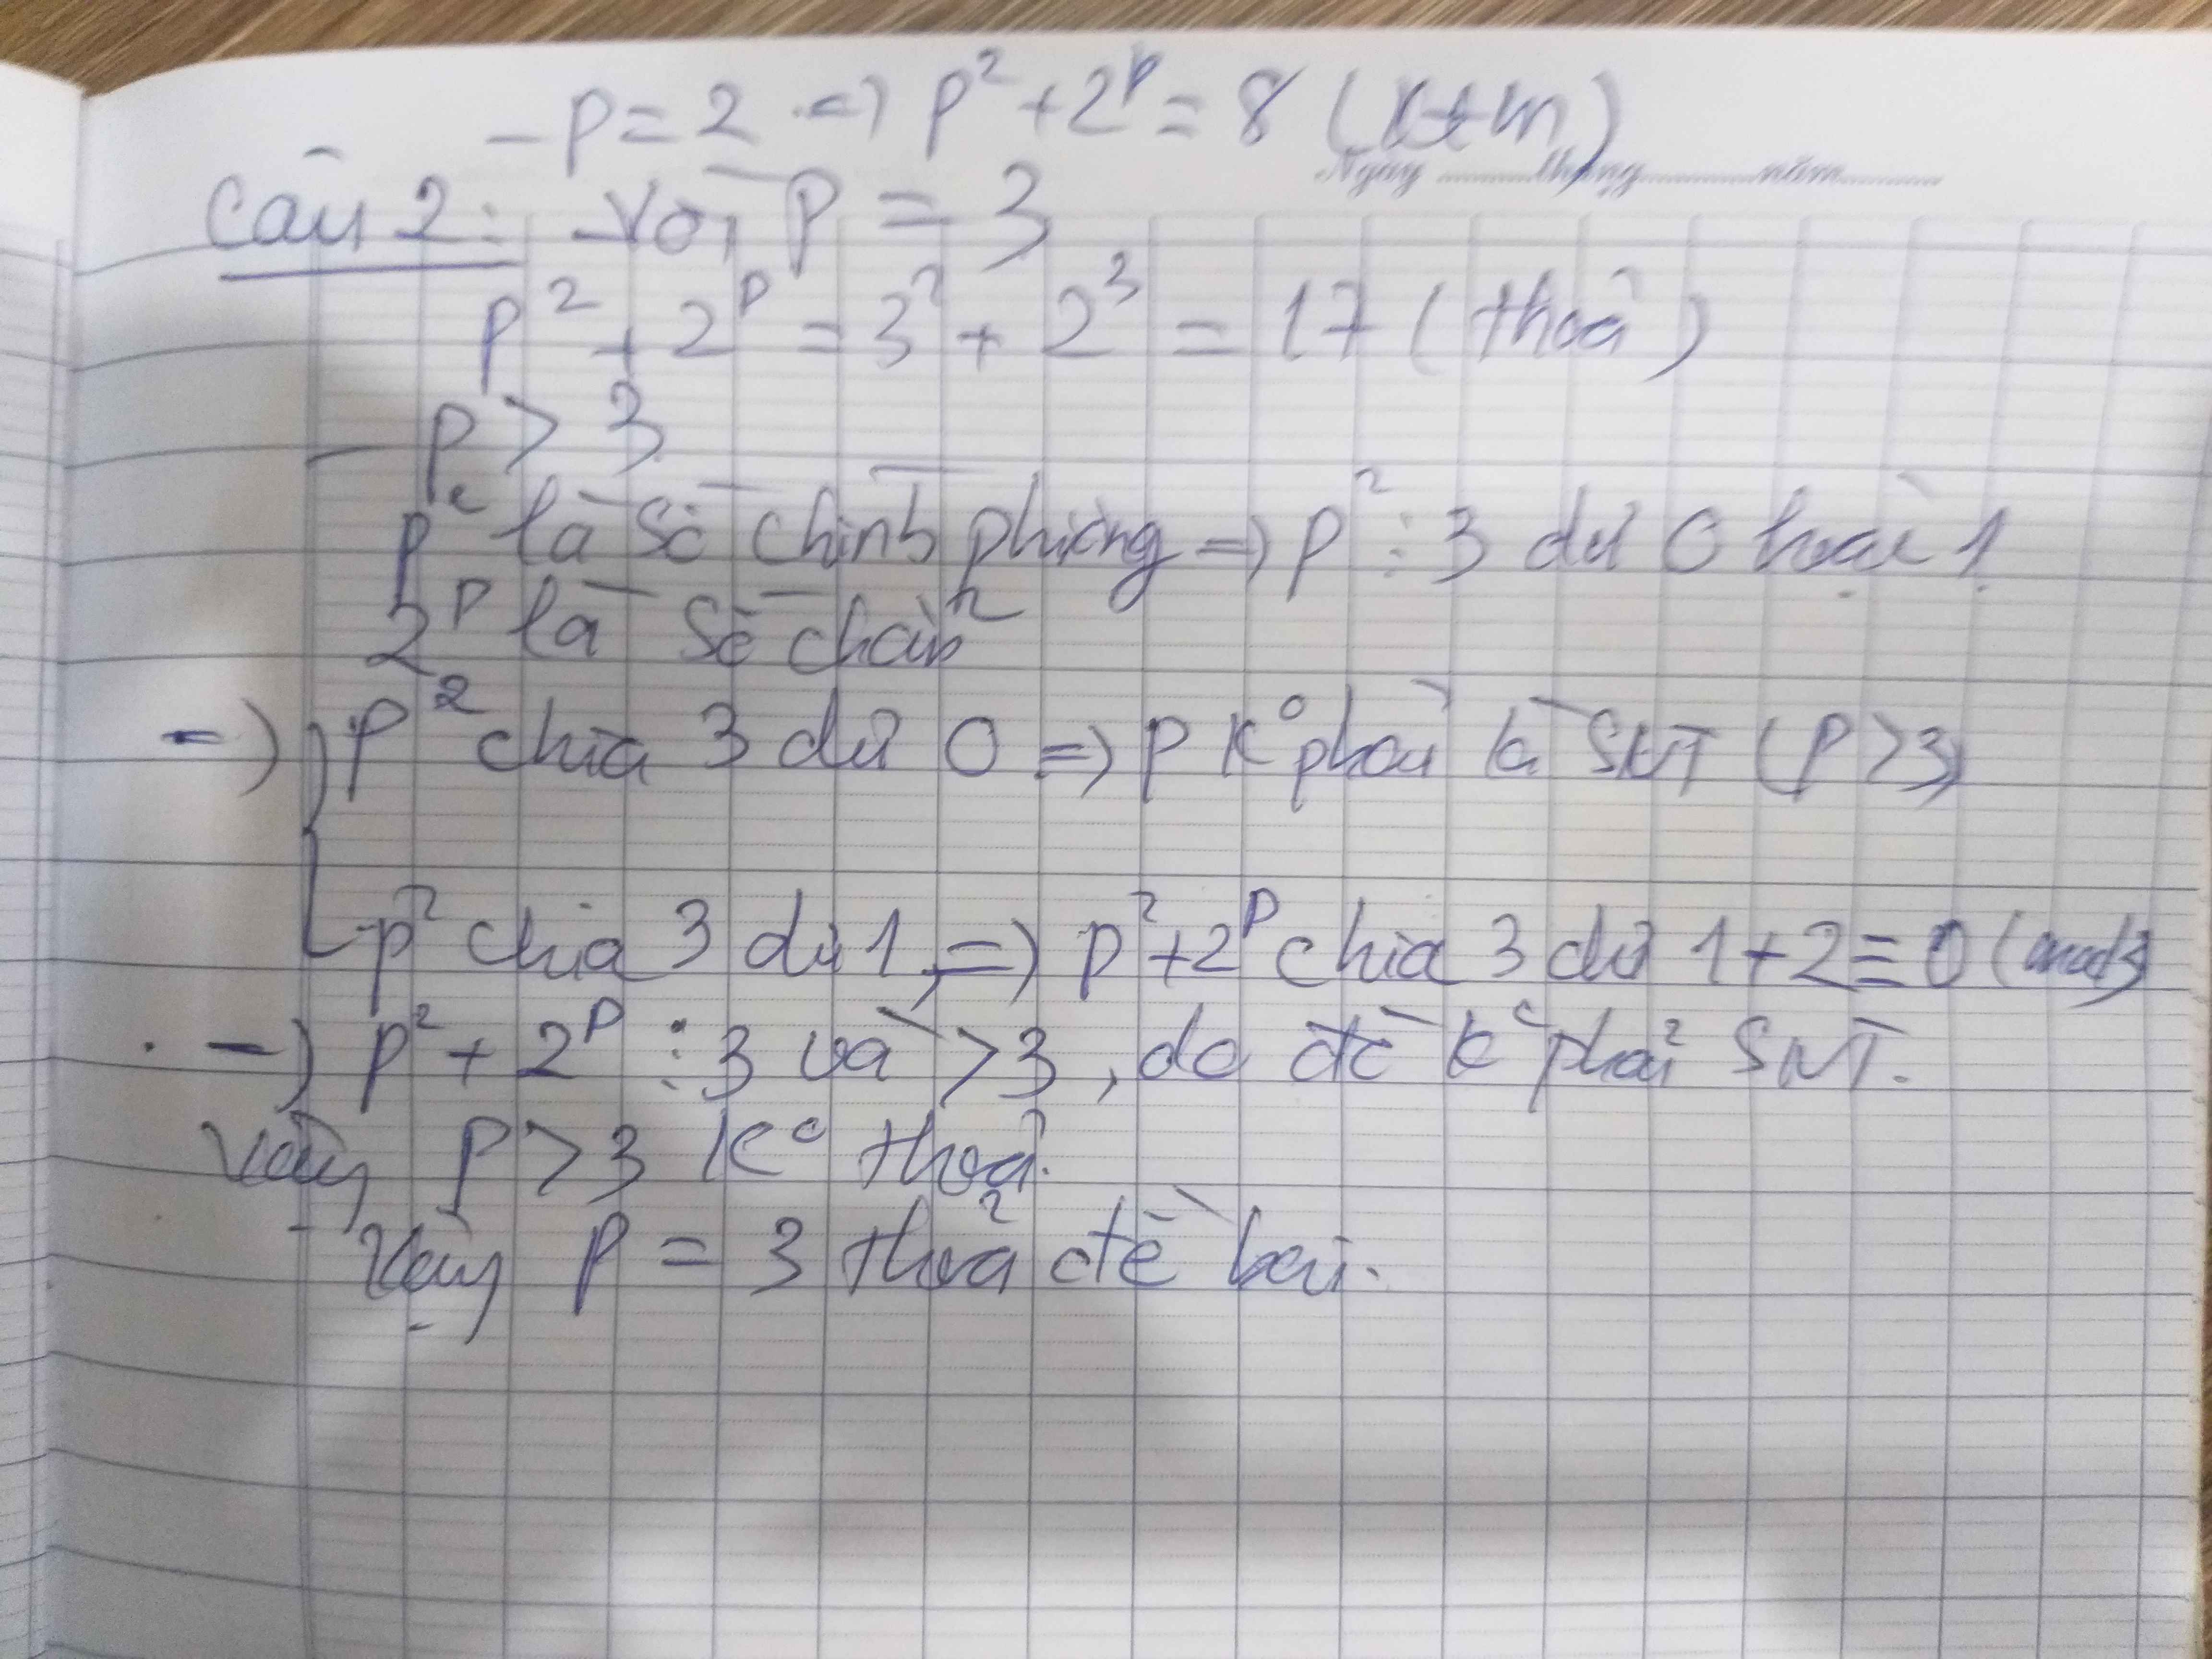 - P = 2 => P² + 2^P = 8 (ktm)
Ngày ......... tháng ......... năm .........
Câu 2: - Với P = 3
P² + 2^P = 3² + 2³ = 17 (thoả)
- P > 3
P² là số chính phương => P² ⋮ 3 dư 0 hoặc 1
2^P là số chẵn
=> { P² chia 3 dư 0 => P k° phải là SNT (P > 3)
P² chia 3 dư 1, => P² + 2^P chia 3 dư 1 + 2 ≡ 0 (mod 3)
=> P² + 2^P ⋮ 3 và > 3, do đó k° phải SNT.
Vậy P > 3 k° thoả.
- Vậy P = 3 thoả đề bài.